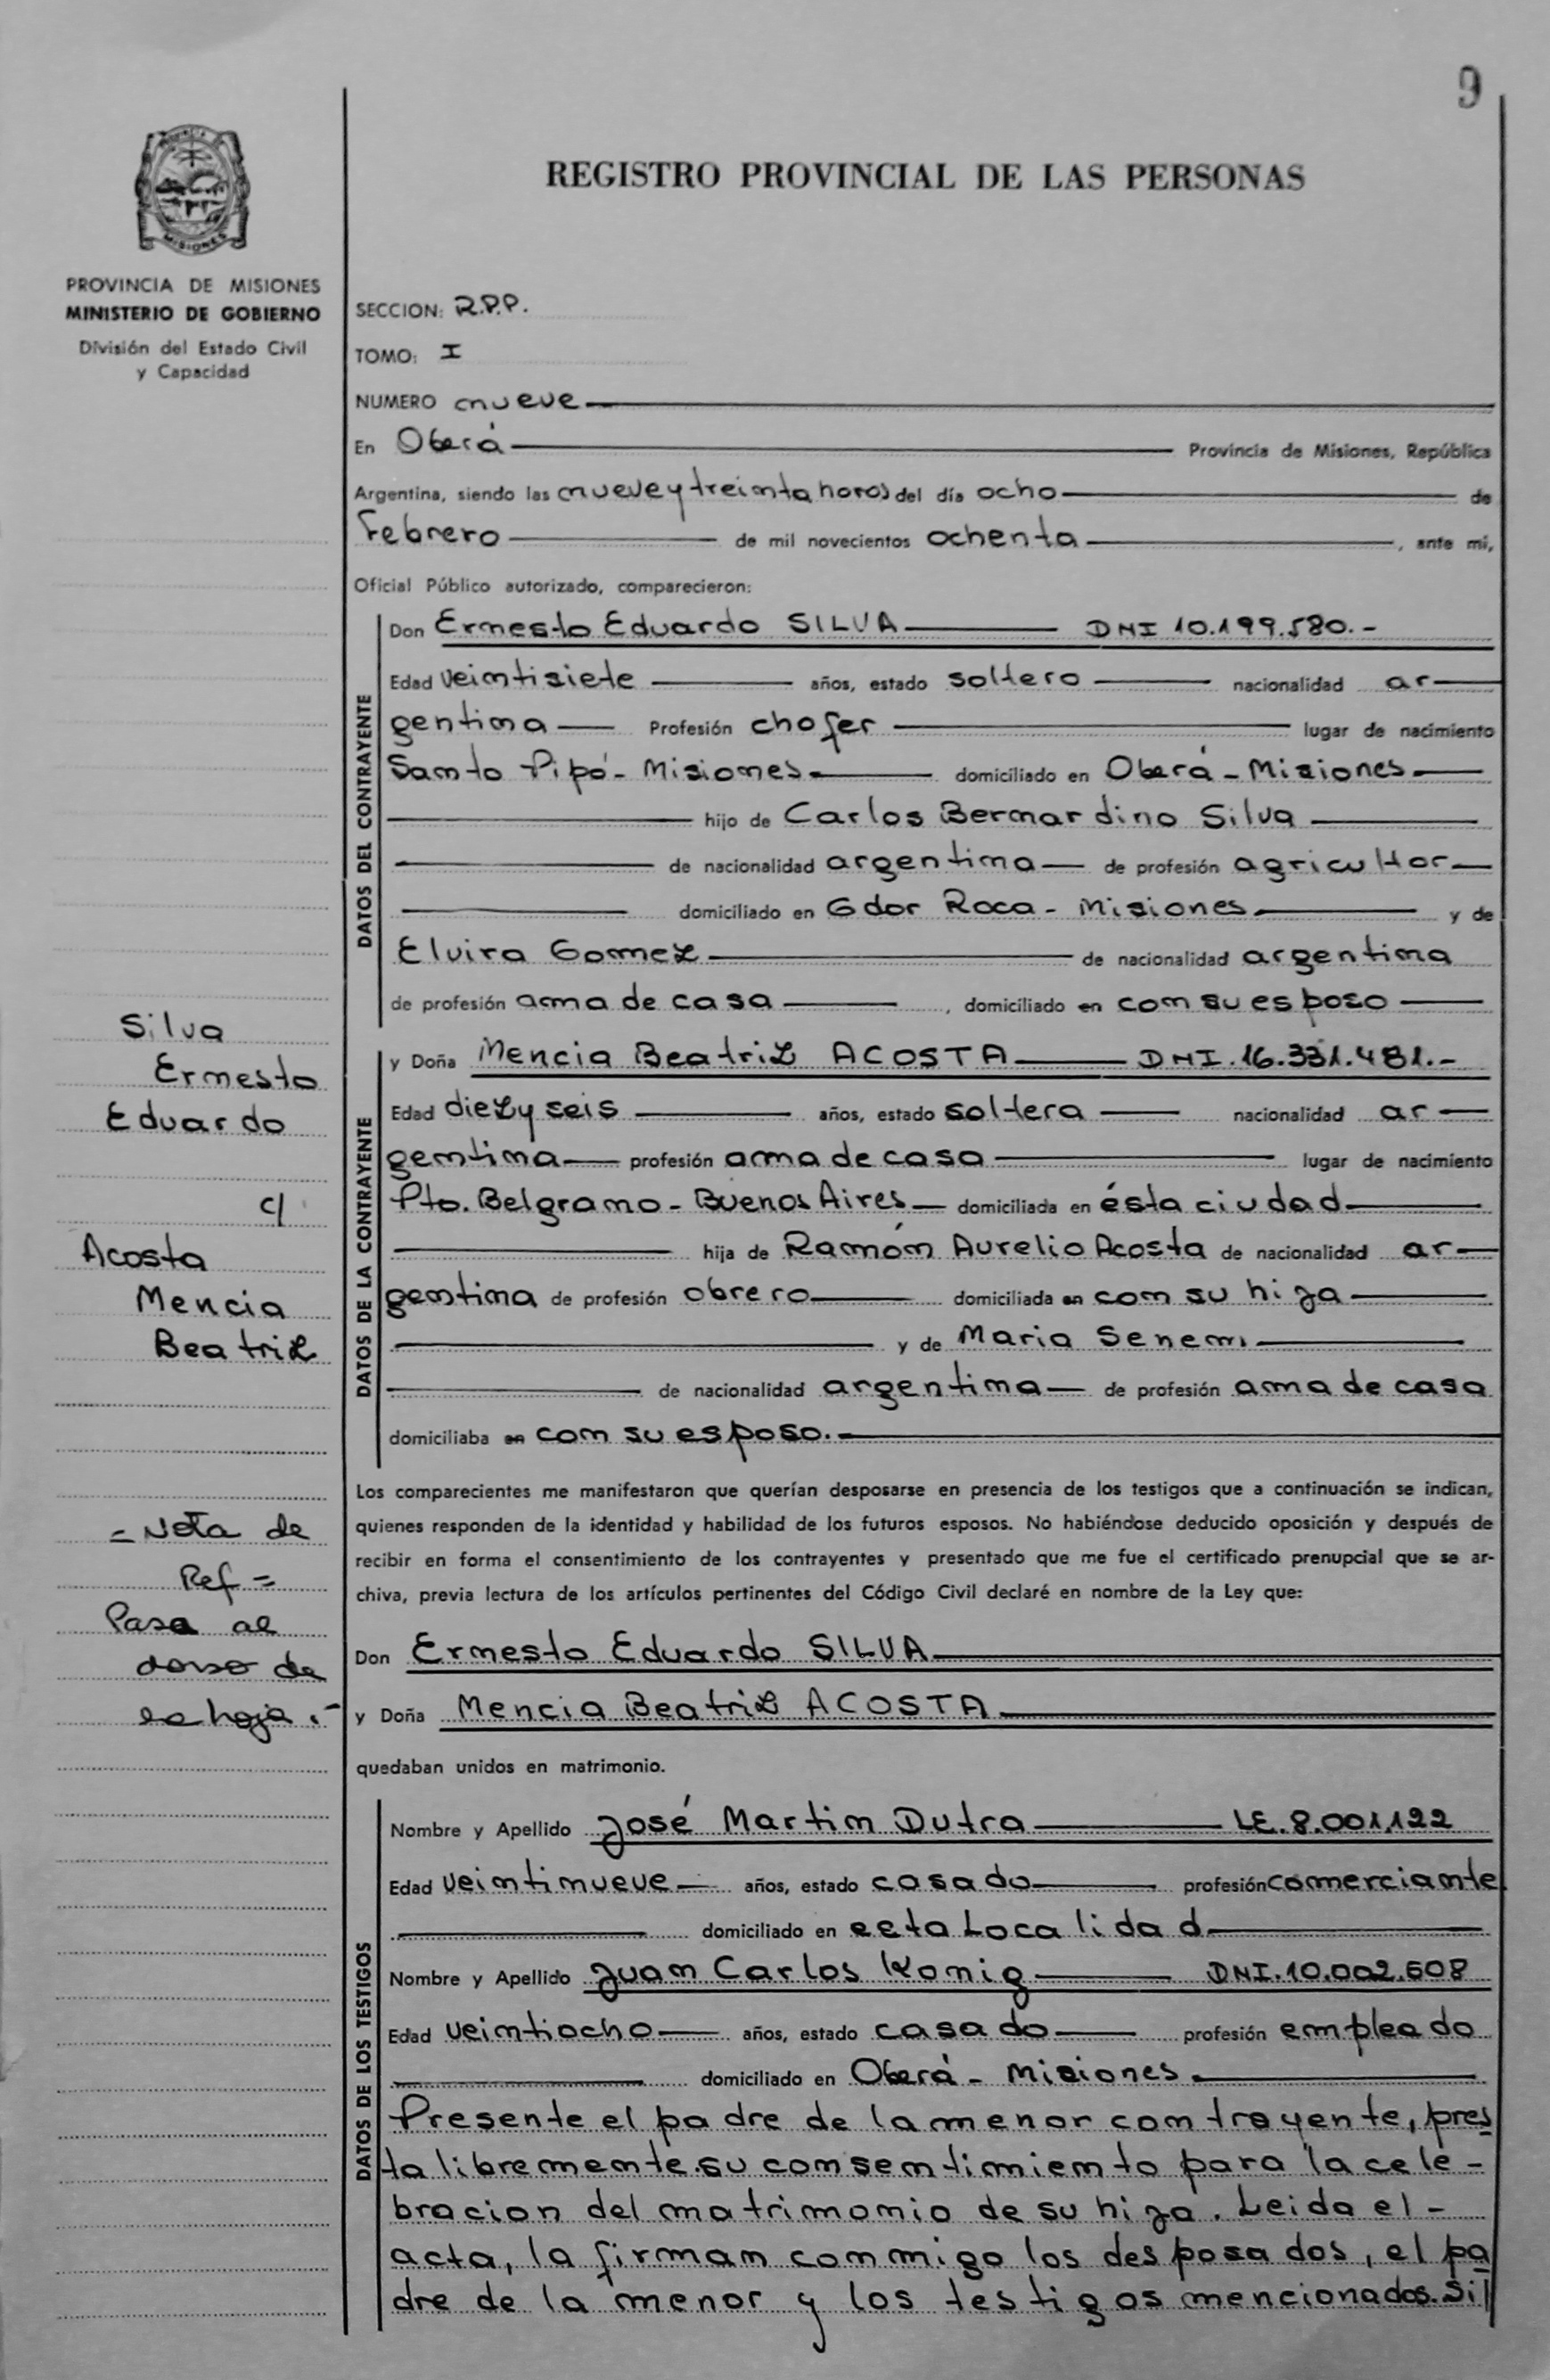 9
REGISTRO PROVINCIAL DE LAS PERSONAS
MISIONES
PROVINCIA DE MISIONES
MINISTERIO DE GOBIERNO
División del Estado Civil
y Capacidad
SECCION: R.P.P.
TOMO: I
NUMERO nueve
En Oberá Provincia de Misiones, República
Argentina, siendo las nueve y treinta horas del día ocho de
Febrero de mil novecientos ochenta, ante mi,
Oficial Público autorizado, comparecieron:
DATOS DEL CONTRAYENTE
Don Ernesto Eduardo SILVA DNI 10.199.580.-
Edad veintisiete años, estado soltero nacionalidad ar-
gentina Profesión chofer lugar de nacimiento
Santo Pipó - Misiones. domiciliado en Oberá - Misiones.
hijo de Carlos Bernardino Silva
de nacionalidad argentina de profesión agricultor
domiciliado en Gdor Roca - Misiones. y de
Elvira Gomez de nacionalidad argentina
de profesión ama de casa, domiciliado en con su esposo
DATOS DE LA CONTRAYENTE
y Doña Mencia Beatriz ACOSTA DNI. 16.331.481.-
Edad diez y seis años, estado soltera nacionalidad ar-
gentina profesión ama de casa lugar de nacimiento
Pto. Belgrano - Buenos Aires domiciliada en ésta ciudad
hija de Ramón Aurelio Acosta de nacionalidad ar-
gentina de profesión obrero domiciliada en con su hija
y de Maria Senem
de nacionalidad argentina de profesión ama de casa
domiciliaba en con su esposo.
Los comparecientes me manifestaron que querían desposarse en presencia de los testigos que a continuación se indican,
quienes responden de la identidad y habilidad de los futuros esposos. No habiéndose deducido oposición y después de
recibir en forma el consentimiento de los contrayentes y presentado que me fue el certificado prenupcial que se ar-
chiva, previa lectura de los artículos pertinentes del Código Civil declaré en nombre de la Ley que:
Don Ernesto Eduardo SILVA
y Doña Mencia Beatriz ACOSTA
quedaban unidos en matrimonio.
DATOS DE LOS TESTIGOS
Nombre y Apellido José Martin Dutra LE. 8.001.122
Edad veintinueve años, estado casado profesión comerciante
domiciliado en esta Localidad
Nombre y Apellido Juan Carlos Konig DNI. 10.002.608
Edad veintiocho años, estado casado profesión empleado
domiciliado en Oberá - Misiones.
Presente el padre de la menor contrayente, pres
ta libremente su consentimiento para la cele-
bracion del matrimonio de su hija. Leida el -
acta, la firman conmigo los desposados, el pa
dre de la menor y los testigos mencionados. Sil
Silva
Ernesto
Eduardo
c/
Acosta
Mencia
Beatriz
= Nota de
Ref =
Pasa al
dorso de
la hoja.-